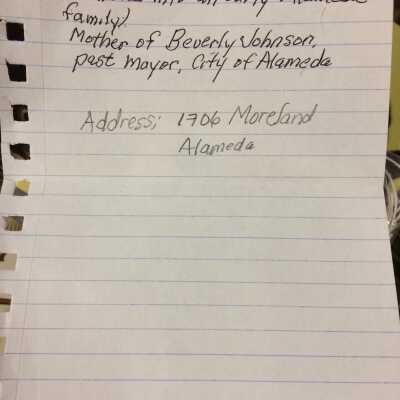 family)
Mother of Beverly Johnson,
past mayor, City of Alameda
Address: 1706 Moreland
Alameda